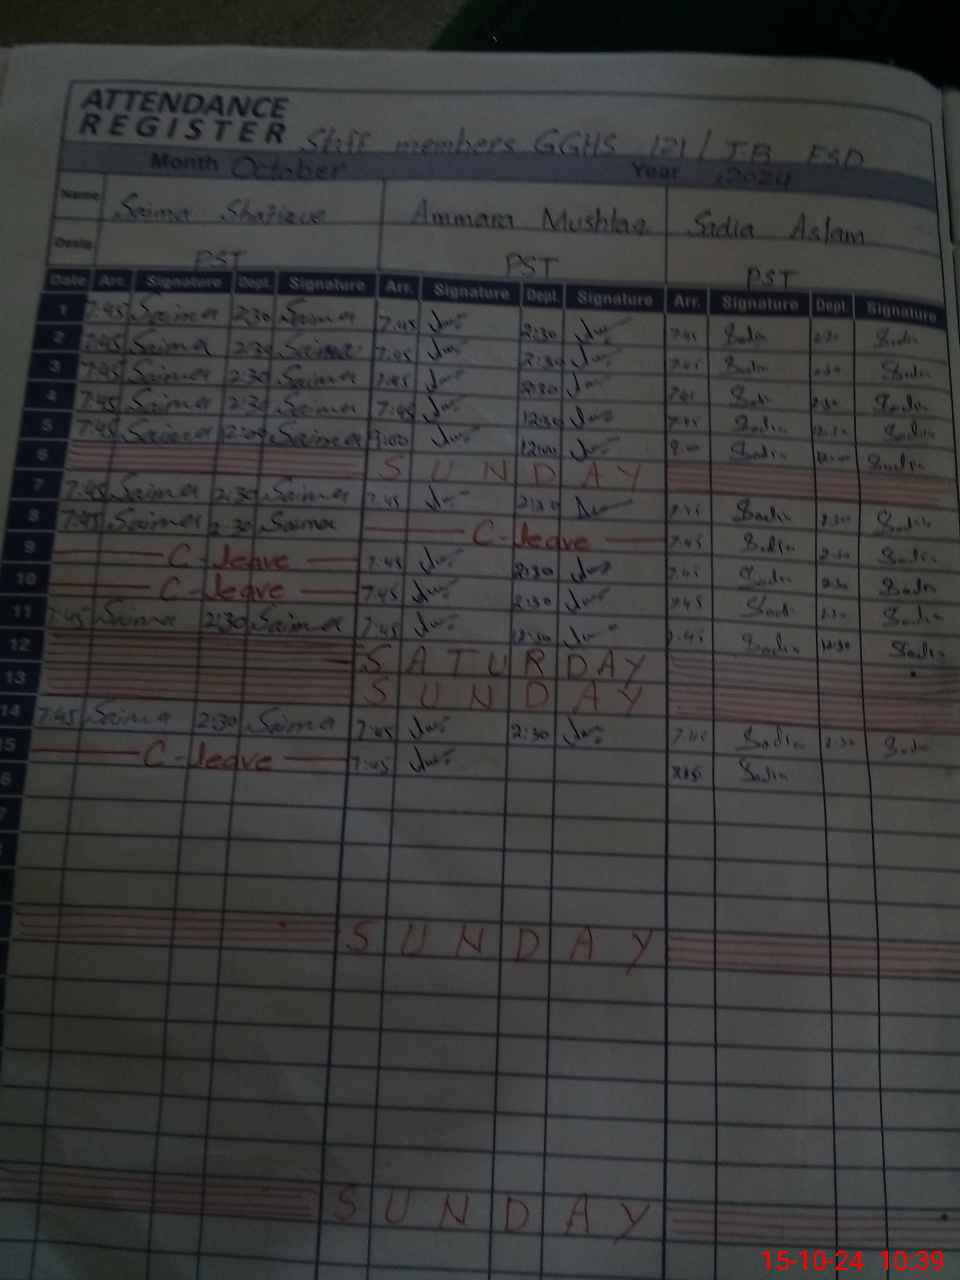 ATTENDANCE
REGISTER Staff members GGHS 121 / JB FSD
Month October Year 2024
Name Saima Shafique Ammara Mushtaq Sadia Aslam
PST PST PST
Date Arr. Signature Dept. Signature Arr. Signature Dept. Signature Arr. Signature Dept. Signature
1 7:45 Saima 2:30 Saima 7:45 2:30 7:45 Sadia 2:30 Sadia
2 7:45 Saima 2:30 Saima 7:45 2:30 7:45 Sadia 2:30 Sadia
3 7:45 Saima 2:30 Saima 7:45 2:30 7:45 Sadia 2:30 Sadia
4 7:45 Saima 2:30 Saima 7:45 12:30 7:45 Sadia 12:30 Sadia
5 7:45 Saima 2:00 Saima 12:00 9:00 Sadia 12:00 Sadia
6 SUNDAY
7 7:45 Saima 2:30 Saima 7:45 2:30 7:45 Sadia 2:30 Sadia
8 7:45 Saima 2:30 Saima C-leave 7:45 Sadia 2:30 Sadia
9 C-leave 7:45 2:30 7:45 Sadia 2:30 Sadia
10 C-leave 7:45 2:30 7:45 Sadia 2:30 Sadia
11 7:45 Saima 2:30 Saima 7:45 12:30 7:45 Sadia 12:30 Sadia
12 SATURDAY
13 SUNDAY
14 7:45 Saima 2:30 Saima 7:45 2:30 7:45 Sadia 2:30 Sadia
5 C-leave 7:45 Sadia
6
7
SUNDAY
SUNDAY
15-10-24 10:39